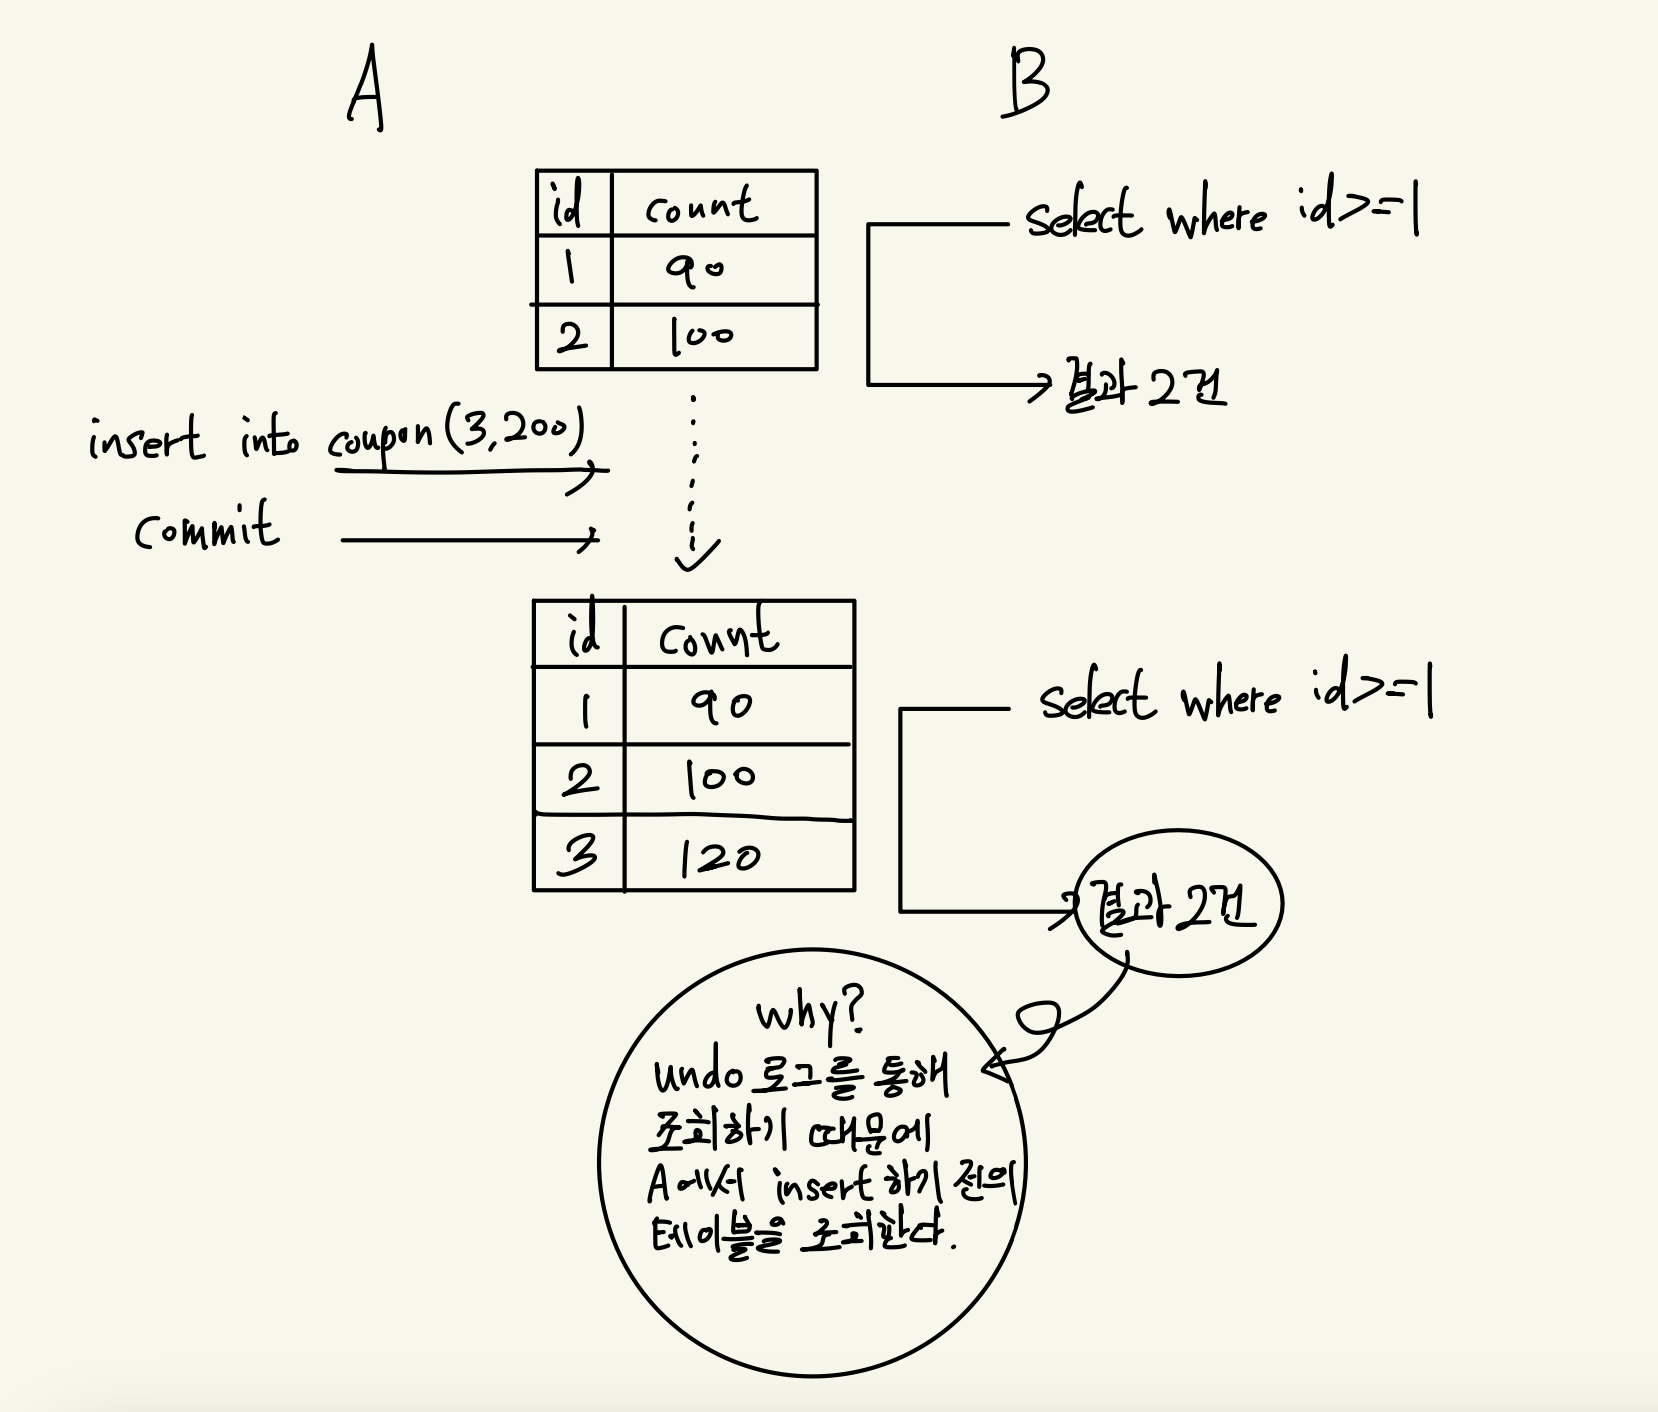 A
B
id count
1 90
2 100
select where id>=1
결과 2건
insert into coupon (3,200)
commit
id count
1 90
2 100
3 120
select where id>=1
결과 2건
why?
undo 로그를 통해
조회하기 때문에
A에서 insert 하기 전의
테이블을 조회한다.